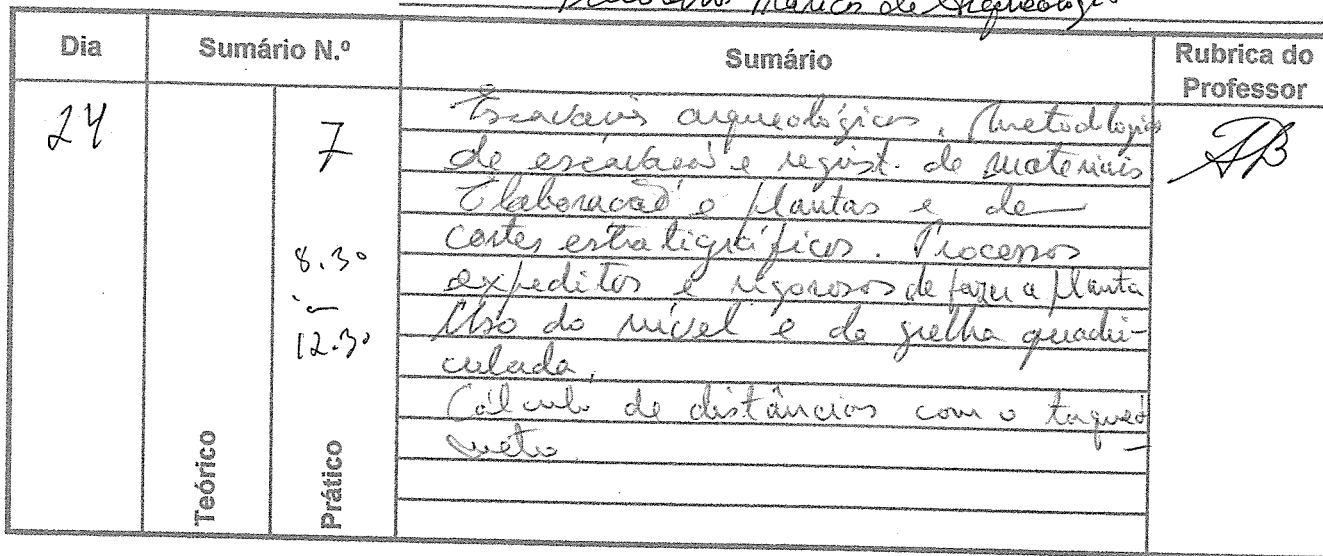 de Arqueologia
Dia
Sumário N.º
Sumário
Rubrica do
Professor
24
7
8.30
12.30
Teórico
Prático
Escavações arqueológicas. Metodologia
de escavação e regist. de materiais
Elaboração e plantas e de
cortes estratigráficos. Processos
expeditos e rigorosos de fazer a planta
Uso do nível e da grelha quadri-
culada.
Cálculo de distâncias com o taqueó
metro.
AB